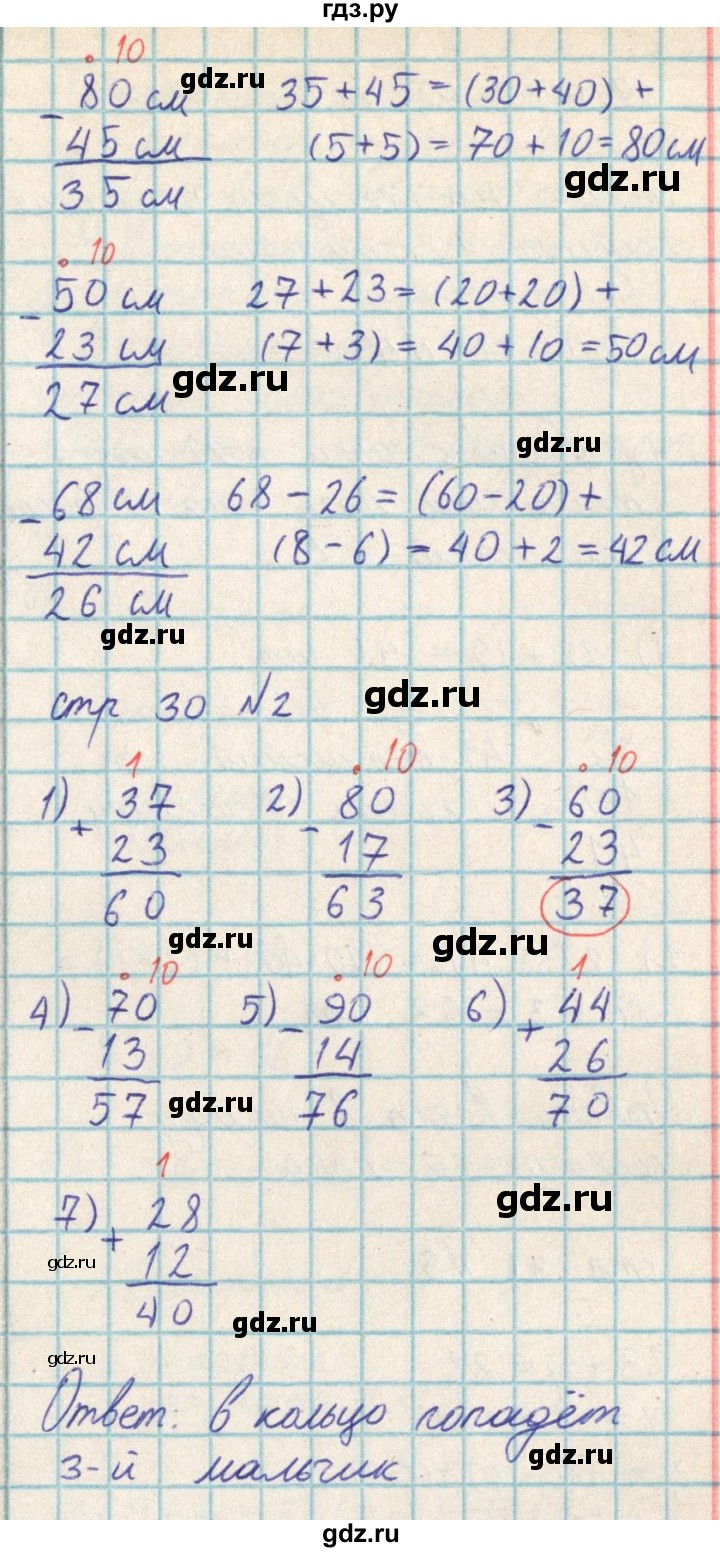 гдз.ру
. 10
- 80 см 35 + 45 = (30 + 40) +
45 см (5 + 5) = 70 + 10 = 80 см
35 см
gdz.ru
gdz.ru
. 10
- 50 см 27 + 23 = (20 + 20) +
23 см (7 + 3) = 40 + 10 = 50 см
27 см
gdz.ru
gdz.ru
- 68 см 68 - 26 = (60 - 20) +
42 см (8 - 6) = 40 + 2 = 42 см
26 см
gdz.ru
стр 30 №2
gdz.ru
1 . 10 . 10
1) + 37 2) - 80 3) - 60
23 17 23
60 63 37
gdz.ru gdz.ru
. 10 . 10 1
4) - 70 5) - 90 6) + 44
13 14 26
57 76 70
gdz.ru
1
7) + 28
12
40
gdz.ru
gdz.ru
gdz.ru
gdz.ru
Ответ: в кольцо попадёт
3-й мальчик
gdz.ru
gdz.ru